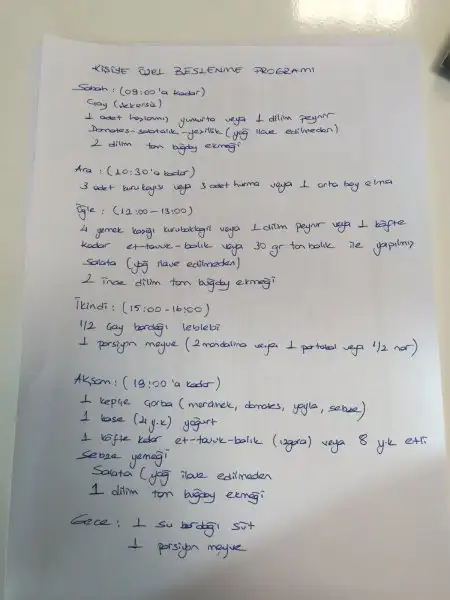 KİŞİYE ÖZEL BESLENME PROGRAMI
Sabah : (09:00'a kadar)
Çay (şekersiz)
1 adet haşlanmış yumurta veya 1 dilim peynir
Domates-salatalık-yeşillik (yağ ilave edilmeden)
2 dilim tam buğday ekmeği
Ara : (10:30'a kadar)
3 adet kuru kayısı veya 3 adet hurma veya 1 orta boy elma
Öğle : (12:00-13:00)
4 yemek kaşığı kurubaklagil veya 1 dilim peynir veya 1 köfte
kadar et-tavuk-balık veya 30 gr ton balık ile yapılmış
salata (yağ ilave edilmeden)
2 ince dilim tam buğday ekmeği
İkindi : (15:00-16:00)
1/2 çay bardağı leblebi
1 porsiyon meyve (2 mandalina veya 1 portakal veya 1/2 nar)
Akşam : (19:00'a kadar)
1 kepçe çorba (mercimek, domates, yayla, sebze)
1 kase (4 y.k) yoğurt
1 köfte kadar et-tavuk-balık (ızgara) veya 8 y.k etli
sebze yemeği
Salata (yağ ilave edilmeden
1 dilim tam buğday ekmeği
Gece : 1 su bardağı süt
1 porsiyon meyve